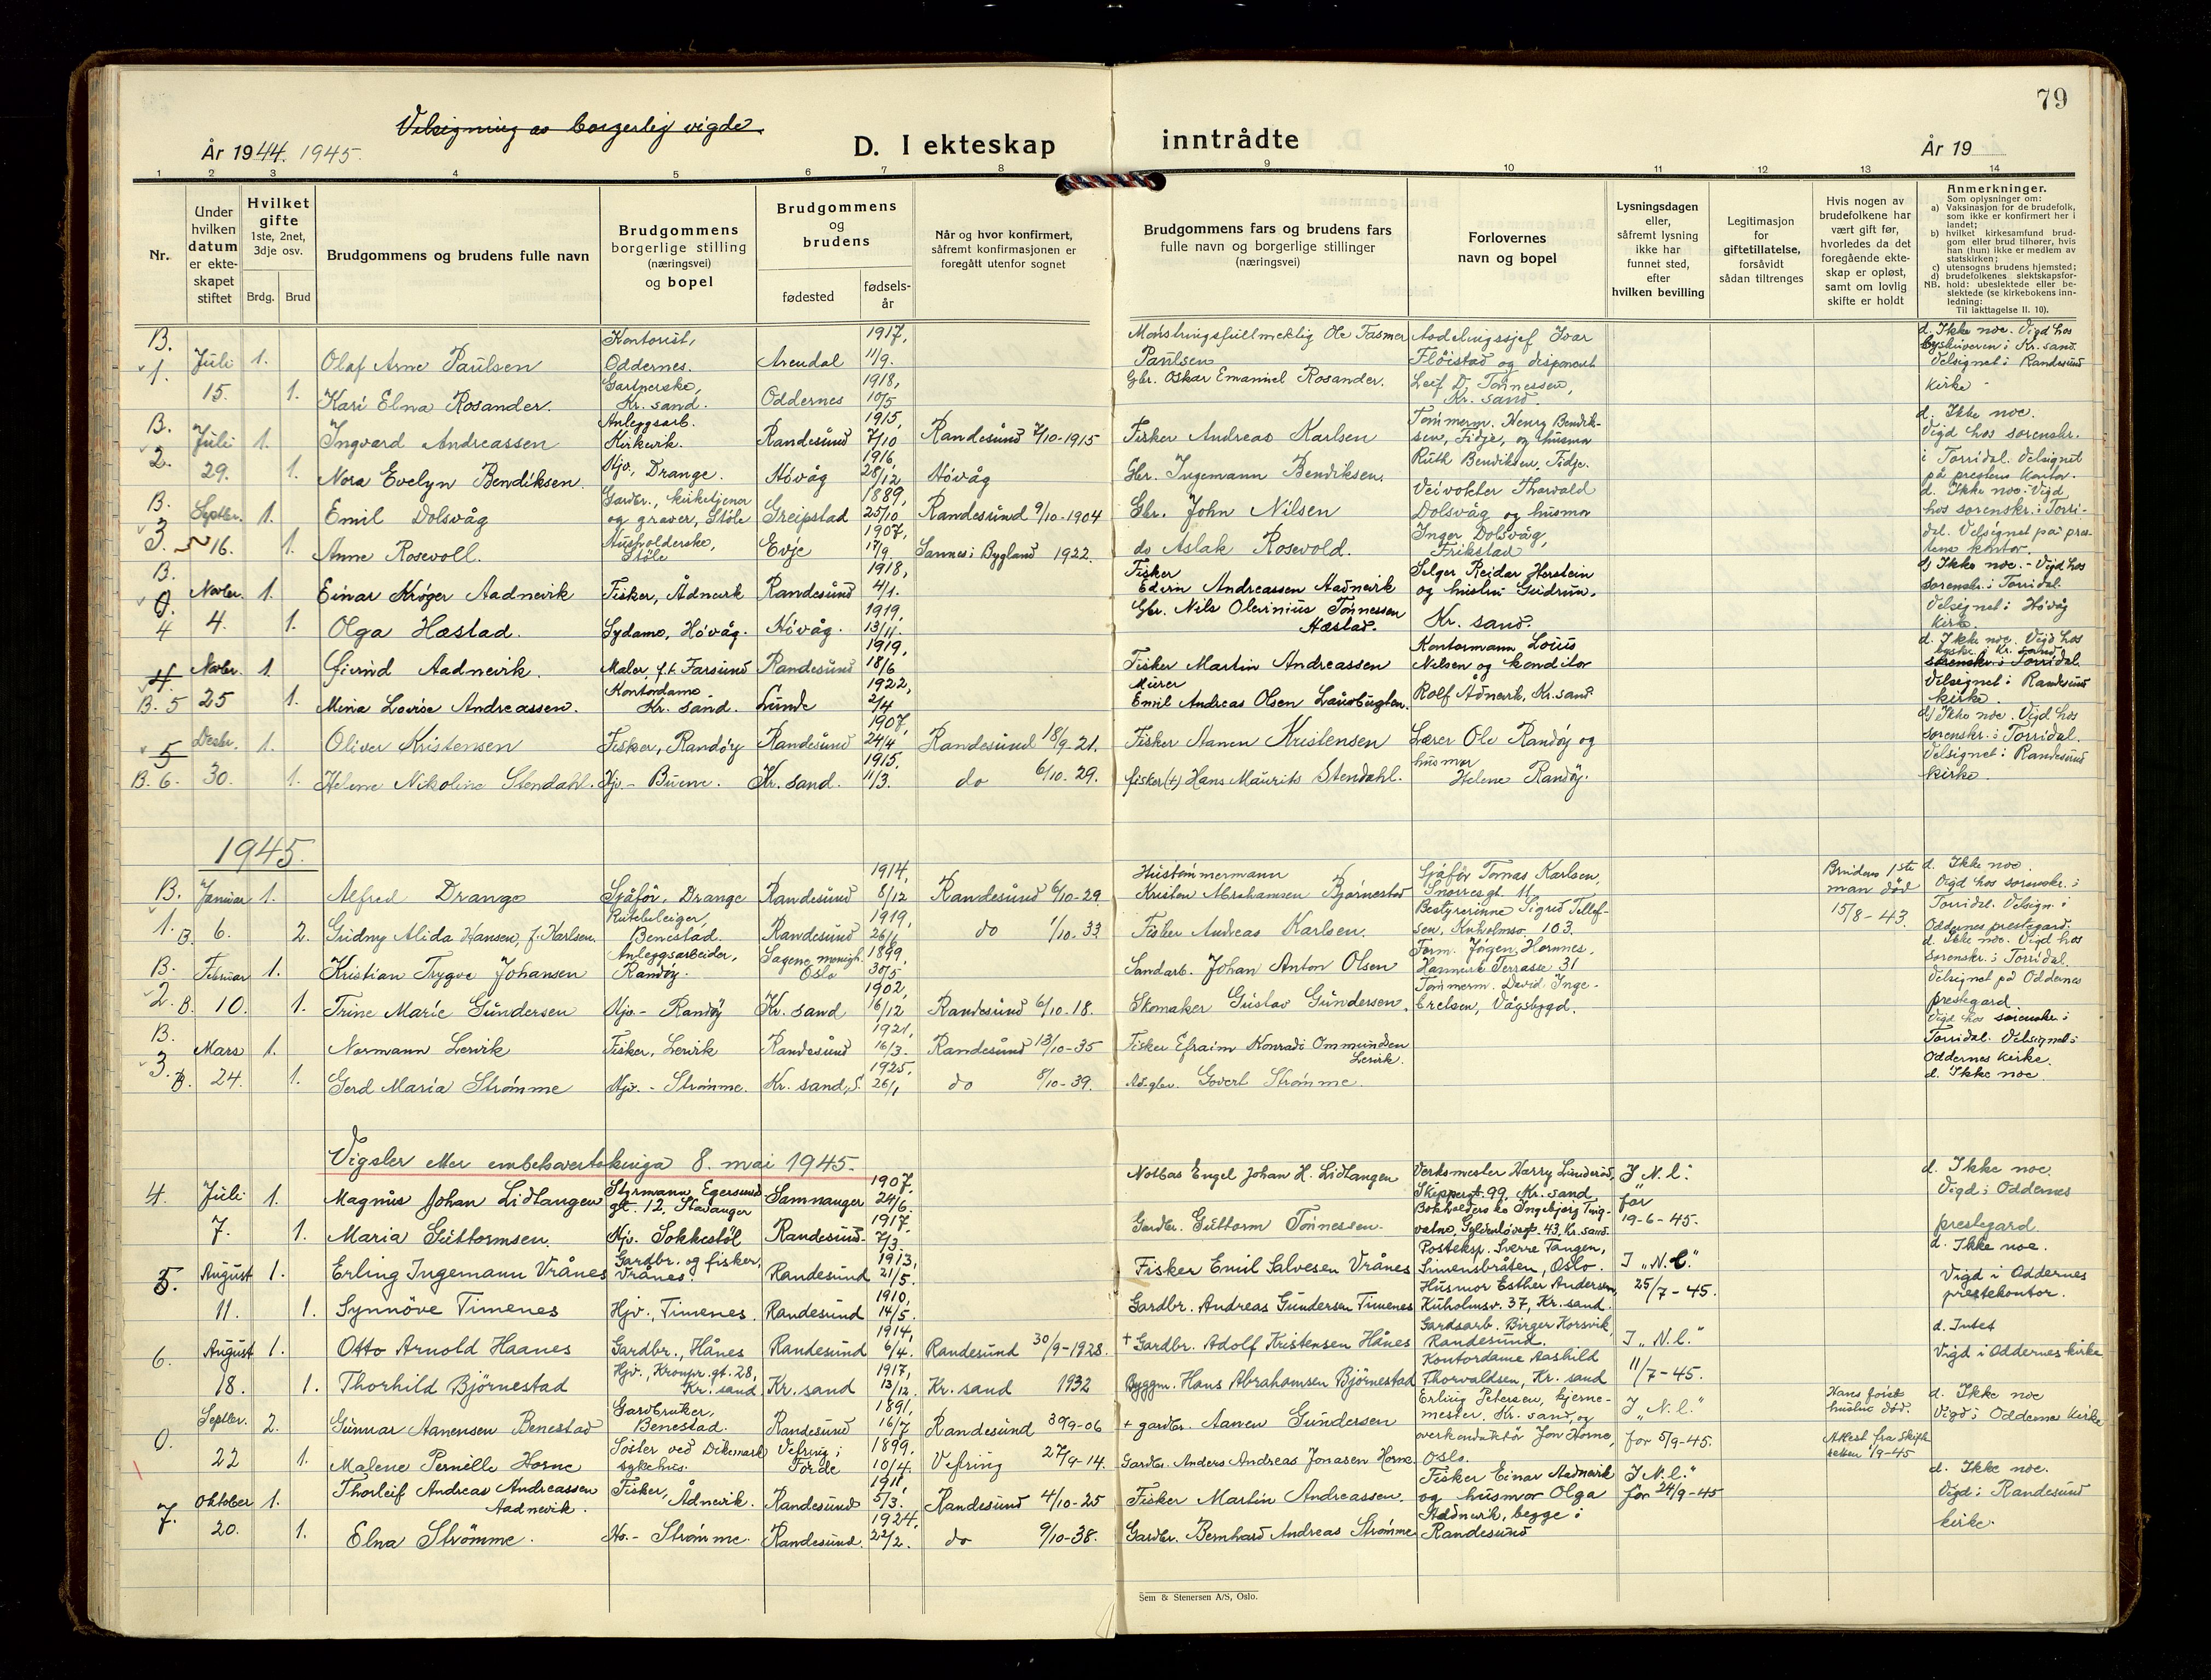 79
Velsigning av borgerlig vigde.
År 1944. 1945.
D. I ekteskap inntrådte
År 19
1 2 3 4 5 6 7 8 9 10 11 12 13 14
Nr.
Under hvilken datum er ekteskapet stiftet
Hvilket gifte 1ste, 2net, 3dje osv.
Brdg. Brud
Brudgommens og brudens fulle navn
Brudgommens borgerlige stilling (næringsvei) og bopel
Brudgommens og brudens
fødested
fødselsår
Når og hvor konfirmert, såfremt konfirmasjonen er foregått utenfor sognet
Brudgommens fars og brudens fars fulle navn og borgerlige stillinger (næringsvei)
Forlovernes navn og bopel
Lysningsdagen eller, såfremt lysning ikke har funnet sted, efter hvilken bevilling
Legitimasjon for giftetillatelse, forsåvidt sådan tiltrenges
Hvis nogen av brudefolkene har vært gift før, hvorledes da det foregående ekteskap er opløst, samt om lovlig skifte er holdt
Anmerkninger.
Som oplysninger om:
a) Vaksinasjon for de brudefolk, som ikke er konfirmert her i landet;
b) hvilket kirkesamfund brudgom eller brud tilhører, hvis han (hun) ikke er medlem av statskirken;
c) utensogns brudens hjemsted;
d) brudefolkenes slektskapsforhold: ubeslektede eller beslektede (se kirkebokens innledning:
NB. Til iakttagelse II. 10).
B. 1. Juli 1. Olaf Arne Paulsen Kontorist, Oddernes. Arendal 1917, 11/9. Mønstringsfullmektig Ole Tasmer Paulsen Avdelingssjef Ivar Fløistad og disponent d. Ikke noe. Vigd hos byskriveren i Kr. sand.
15. 1. Kari Elna Rosander. Gartnerske, Kr. sand. Oddernes 1918, 10/5 Gbr. Oskar Emanuel Rosander. Leif D. Tønnessen, Kr. sand. Velsignet i Randesund kirke -
B. 2. Juli 1. Ingvard Andreassen Anleggsarb. Kikvik. Randesund 1915, 7/10 Randesund 2/10-1915 Fisker Andreas Karlsen Tømmerm. Henry Bendiksen, Fidje, og husmor d. Ikke noe. Vigd hos sorenskr.
29. 1. Nora Evelyn Bendiksen. Hjv., Drange. Høvåg 1916 28/12 Høvåg Gbr. Ingemann Bendiksen. Ruth Bendiksen, Fidje. i Torridal. Velsignet på prestens kontor.
B. 3. Septbr. 1. Emil Dolsvåg Gardbr., kirketjener og graver, Støle Greipstad 1889, 25/10 Randesund 9/10-1904 Gbr. John Nilsen Veivokter Thorvald Dolsvåg og husmor d. Ikke noe. Vigd hos sorenskr. i Torri-
16. 1. Anne Rosevoll. Husholderske, Støle Evje 1907, 17/9 Sannes i Bygland 1922. do Aslak Rosevold. Inger Dolsvåg, Frikstad del. Velsignet på prestens kontor.
B. 4 Novbr. 1. Einar Krøger Aadnevik Fisker, Ådnevik Randesund 1918, 4/1. Fisker Edvin Andreassen Aadnevik Selger Reidar Herstein og hustru Gudrun, d) Ikke noe. - Vigd hos sorenskr. i Torridal.
4. 1. Olga Hæstad. Sydame, Høvåg. Høvåg. 1919, 13/11. Gbr. Nils Olevinius Tønnessen Hæstad. Kr. sand. Velsignet i Høvåg kirke.
4 Novbr. 1. Øivind Aadnevik. Maler, f.t. Farsund Randesund 1919, 18/6 Fisker Martin Andreassen Kontormann Louis Nilsen og konditor d. Ikke noe. Vigd hos byskr. i Kr. sand sorenskr. i Torridal.
B. 5 25 1. Mina Lovise Andreassen. Kontordame Kr. sand. Lunde 1922, 2/4 Murer Emil Andreas Olsen Laursbugten. Rolf Ådnevik, Kr. sand. Velsignet i Randesund kirke.
5 Desbr. 1. Oliver Kristensen Fisker, Randøy Randesund 1907, 24/4 Randesund 18/9-21. Fisker Aanen Kristensen Lærer Ole Randøy og husmor d) Ikke noe. Vigd hos sorenskr. i Torridal.
B. 6. 30. 1. Helene Nikoline Stendahl. Hjv. - Buene. Kr. sand. 1915. 11/3. do 6/10-29. fisker (+) Hans Maurits Stendahl. Helene Randøy. Velsignet i Randesund kirke.
1945.
B. 1. Januar 1. Alfred Drange Sjåfør, Drange Randesund 1914, 8/12 Randesund 6/10-29 Hustømmermann Kristen Abrahamsen Bjørnestad Sjåfør Tomas Karlsen, Snorresgt. 11. Brudens 1ste man død d. Ikke noe. Vigd hos sorenskr. i
B. 6. 2. Gudny Alida Hansen, f. Karlsen. Rutebileier, Benestad. Randesund 1919, 26/1 do 1/10-33 Fisker Andreas Karlsen. Bestyrerinne Sigrid Tellefsen, Kuholmsv. 103. 15/8-43. Torridal. Velsign. i Oddernes prestegard.
B. 2. Februar 1. Kristian Trygve Johansen Anleggsarbeider, Randøy. Sagene menigh. Oslo 1899, 30/5 Sandarb. Johan Anton Olsen Form. Jørgen Hornnes, Hannevik Terrasse 31 d. Ikke noe. Vigd hos sorenskr. i Torridal.
B. 10. 1. Trine Marie Gundersen Hjv. - Randøy Kr. sand 1902, 16/12 Randesund 6/10-18. Skomaker Gustav Gundersen. Tømmerm. David Ingebretsen, Vågsbygd. Velsignet på Oddernes prestegard.
B. 3. Mars 1. Normann Lervik Fisker, Lervik Randesund 1921, 16/3. Randesund 13/10-35 Fisker Efraim Konradi Ommundsen Lervik. Vigd hos sorenskr. i Torridal. Velsignet i
B. 24. 1. Gerd Maria Strømme Hjv. - Strømme. Kr. sand, S. 1925. 26/1 do 8/10-39. Govert Strømme. Oddernes kirke. d. Ikke noe
Vigsler etter embetsovertakinga 8. mai 1945.
4. Juli 1. Magnus Johan Lidtangen Styrmann, Egersund gt. 12, Stavanger Samnanger 1907. 24/6. Notbas Engel Johan H. Lidtangen Verksmester Harry Linderød, Skippergt. 99, Kr. sand I N.l. for d. Ikke noe. Vigd i Oddernes
7. 1. Maria Guttormsen. Hjv. Sokkestøl Randesund 1917. 7/3. Gardbr. Guttorm Tønnessen. Bokholderske Ingebjørg Tvigvatne, Gyldenløvesgt. 43, Kr. sand. 19-6-45. prestegard
5. August 1. Erling Ingemann Vrånes Gardbr. og fisker, Vrånes. Randesund 1913, 21/5. Fisker Emil Salvesen Vrånes Posteksp. Sverre Tangen, Simensbråten, Oslo. I "N.l." d. Ikke noe.
11. 1. Synnöve Timenes Hjv., Timenes. Randesund 1910, 14/5. Gardbr. Andreas Gundersen Timenes Husmor Esther Andersen, Kuholmsv. 37, Kr. sand. 25/7-45. Vigd i Oddernes prestekontor.
6. August 1. Otto Arnold Haanes Gardbr., Hånes Randesund 1914, 6/4. Randesund 30/9-1928. + Gardbr. Adolf Kristensen Hånes Gardsarb. Birger Korsvik, Randesund. I "N.l." d. Intet
18. 1. Thorhild Björnestad Hjv., Kronpr.gt. 28, Kr. sand Kr. sand 1917, 13/12. Kr. sand 1932 Byggm. Hans Abrahamsen Björnestad Kontordame Aashild Thorvaldsen, Kr. sand 11/7-45. Vigd i Oddernes kirke
0. Septbr. 2. Gunnar Aanensen Benestad Gardbruker, Benestad. Randesund 1891, 16/7 Randesund 30/9-06 + gardbr. Aanen Gundersen Erling Petersen, hjernemester, Kr. sand, og I "N.l." Hans første hustru død. d. Ikke noe
22 1. Malene Pernille Horne Søster ved Dikemark sykehus. Vefring i Førde 1899. 10/4. Vefring 27/9-14. Gardbr. Anders Andreas Jonasen Horne. Jon Horne, Oslo. for 5/9-45. Attest fra skifteretten 19-45 Vigd i Oddernes kirke
7. Oktober 1. Thorleif Andreas Andreassen Aadnevik. Fisker, Ådnevik. Randesund 1911, 5/3. Randesund 4/10-25 Fisker Martin Andreassen. Fisker Einar Aadnevik og husmor Olga I N.l." for 24/9-45 d. Ikke noe. Vigd i Randesund
20. 1. Elna Strømme. Hv. - Strømme. Randesund. 1924. 22/2. do 9/10-38. Gardbr. Bernhard Andreas Strømme Aadnevik, begge i Randesund kirke.
Sem & Stenersen A/S, Oslo.